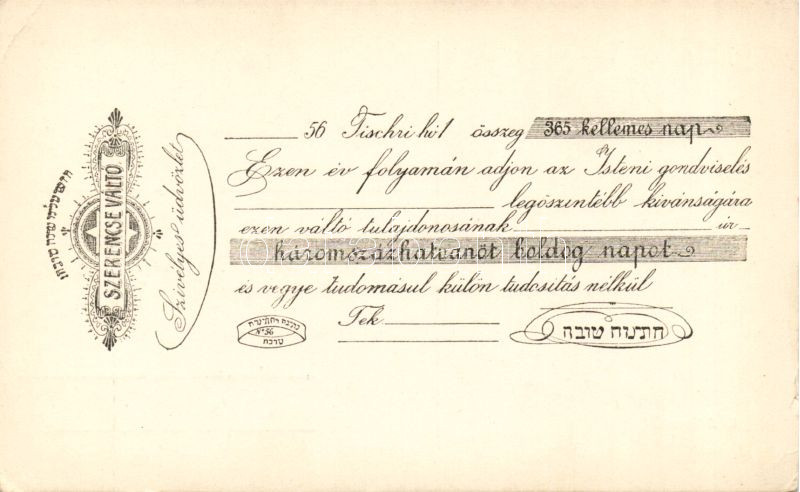 SZERENCSE VÁLTÓ
Szivélyes üdvözlet
56 Tischri hó 1 összeg 365 kellemes nap
Ezen év folyamán adjon az Isteni gondviselés
legőszintébb kivánságára
ezen váltó tulajdonosának úr
háromszázhatvanöt boldog napot
és vegye tudomásul külön tudositás nélkül
Tek
No 56
חתימה טובה